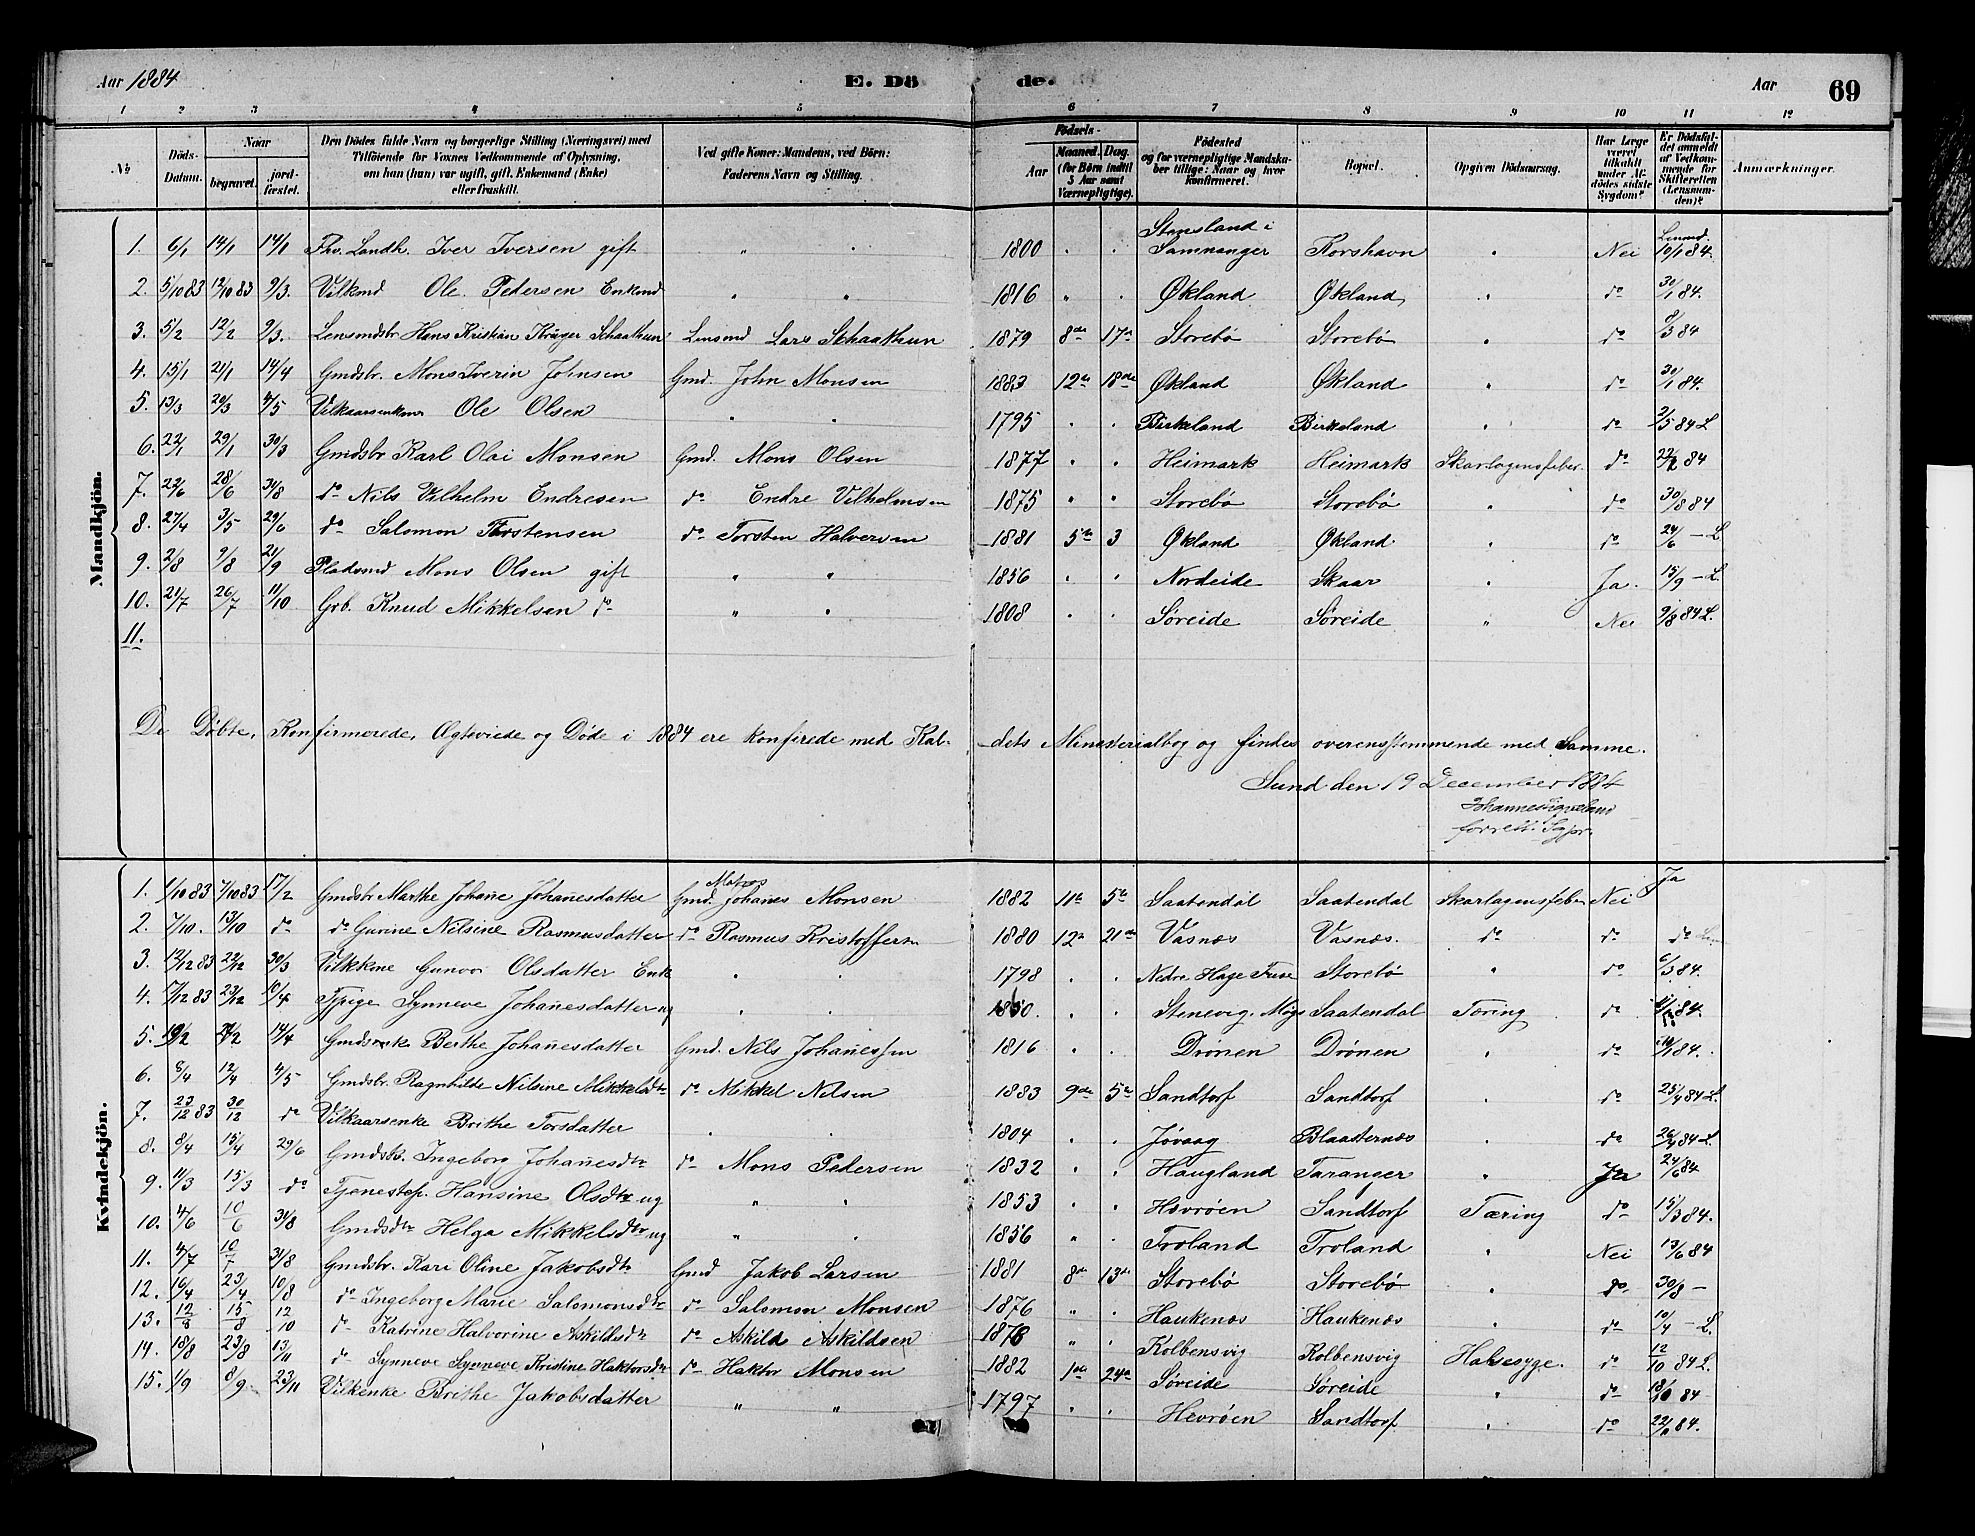 Aar 1884 E. Dö de. Aar 69
1 2 3 4 5 6 7 8 9 10 11 12
№ Döds-Datum. Naar begravet. jordfæstet. Den Dödes fulde Navn og borgerlige Stilling (Næringsvei) med Tilföiende for Voxnes Vedkommende af Oplysning, om han (hun) var ugift, gift, Enkemand (Enke) eller fraskilt. Ved gifte Koner: Mandens, ved Börn: Faderens Navn og Stilling. Födsels- Aar Maaned. Dag. (for Börn indtil 5 Aar samt Værnepligtige). Födested og for værnepligtige Mandskaber tillige: Naar og hvor konfirmeret. Bopæl. Opgiven Dödsaarsag. Har Læge været tilkaldt under Afdödes sidste Sygdom? Er Dödsfaldet anmeldt af Vedkommende for Skifteretten (Lensmanden)? Anmærkninger.
Mandkjön.
1. 6/1 14/1 14/1 Fhv. Landh. Iver Iversen gift " " 1800 " " Stensland i Samnanger Korshavn " Nei Lensmd 10/1 84.
2. 5/10 83 12/10 83 9/3. Vilkmd Ole Pedersen Enkemd " " 1816 " " Økland Økland " do 30/1 84.
3. 5/2 12/2 9/3. Lensmdsbr. Hans Kristian Krüger Schaathun Lensmd Lars Schaathun 1879 8de 17de Storebø Storebø " do 8/3 84
4. 15/1 21/1 14/4 Gmdsbr. Mons Iverin Johnsen Gmd. John Monsen 1883 12te 18de Økland Økland " do 30/1 84.
5. 13/3 20/3 4/5 Vilkaarsenkem. Ole Olsen " " 1795 " " Birkeland Birkeland " do 2/5 84 L
6. 22/1 29/1 30/3 Gmdsbr Karl Olai Monsen Gmd. Mons Olsen 1877 " " Heimark Heimark Skarlagensfeber do 22/2 84
7. 22/6 28/6 31/8 do Nils Vilhelm Endresen do Endre Vilhelmsen 1875 " " Storebø Storebø " do 30/8 84
8. 27/4 3/5 29/6 do Salomon Torstensen do Torsten Halversen 1881 5te 3 Økland Økland " do 24/6 — L
9. 2/8 9/8 21/9 Pladsmd Mons Olsen gift " " 1856 " " Nordeide Skaar " Ja. 15/9 — L.
10. 21/7 26/7 11/10 Grb. Knud Mikkelsen do " " 1808 " " Søreide Søreide " Nei 9/8 84 L.
11.
De Døbte, Konfirmerede, Ægteviede og Døde i 1884 ere konferede med Kaldets Ministerialbog og findes overensstemmende med Samme.
Sund den 19 December 1884
Johannes Sigveland
forrett. Sgpr.
Kvindekjön.
1. 1/10 83 7/10 83 17/2 Gmdsbr Marthe Johane Johanesdatter Gmd. Johanes Monsen 1882 11te 5te Saatendal Saatendal Skarlagensfeber Nei Ja
2. 7/10. 13/10 do do Gurine Nilsine Rasmusdatter do Rasmus Kristoffersn 1880 12te 21de Vasnæs Vasnæs. do do do
3. 12/12 83 22/12 30/3 Vilkkone Gunvor Olsdatter Enk " " 1798 " " Nedre Hage Fuse Storebø " do 6/3 84.
4. 17/12 83 23/12 10/4 Tjpige Synneve Johanesdatter ug " " 1850. " " Stenevig. Møgs Saatendal Tæring do 84.
5. 14/4 Gmdsenke Berthe Johanesdatter Gmd. Nils Johanessen 1816 " " Drønen Drønen " do 84.
6. 8/4 12/4 4/5 Gmdsbr. Ragnhilde Nilsine Mikkelsdtr do Mikkel Nilsen 1883 9de 5te Sandtorf Sandtorf " do 25/4 84 L.
7. 23/12 83 30/12 do Vilkaarsenke Brithe Torsdatter " " 1804 " " Jøvaag Blaasternæs " do 26/4 84 L
8. 8/4 15/4 29/6 Gmdsk. Ingeborg Johanesdtr do Mons Pedersen 1832 " " Haugland Taranger " Ja 24/6 84
9. 11/3 15/3 do Tjenestep. Hansine Olsdtr ug " " 1853 " " Hevrøen Sandtorf Tæring do 15/3 84.
10. 4/6 10/6 31/8 Gmdsdtr Helga Mikkelsdtr ug " " 1856 " " Troland Troland " Nei 13/6 84
11. 4/7 10/7 31/8 Gmdsbr. Kari Oline Jakobsdtr Gmd Jakob Larsen 1881 8de 13de Storebø Storebø " do 30/8 —
12. 16/4 23/4 10/8 do Ingeborg Marie Salomonsdtr do Salomon Monsen 1876 " " Haukenæs Haukenæs " do 10/4 — L.
13. 12/8 15/8 12/10 do Katrine Halvorine Askildsdtr do Askild Askildsen 1876 " " Kolbensvig Kolbensvig Halsesyge. do 12/10 84 L.
14. 18/8 23/8 13/11 do Synneve Synneve Kristine Haktorsdtr do Haktor Monsen 1882 1de 24de Søreide Søreide " do 18/10 84
15. 1/9 8/9 23/11 Vilkenke Brithe Jakobsdatter " " 1797 " " Hevrøen Sandtorf " do 84.